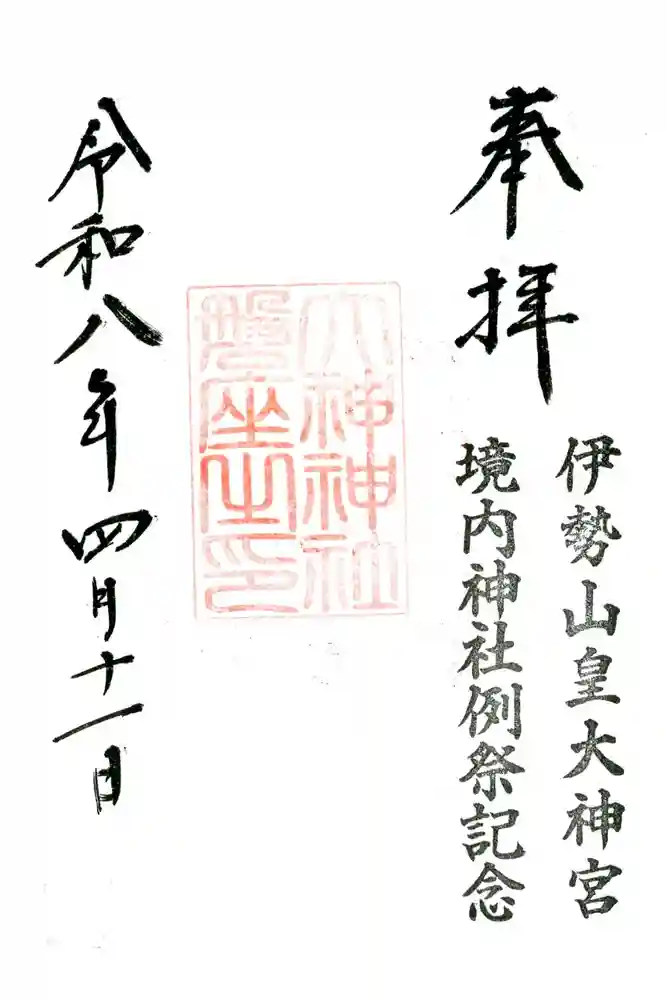 奉拝
伊勢山皇大神宮
境内神社例祭記念
大神神社
磐座之印
令和八年四月十一日